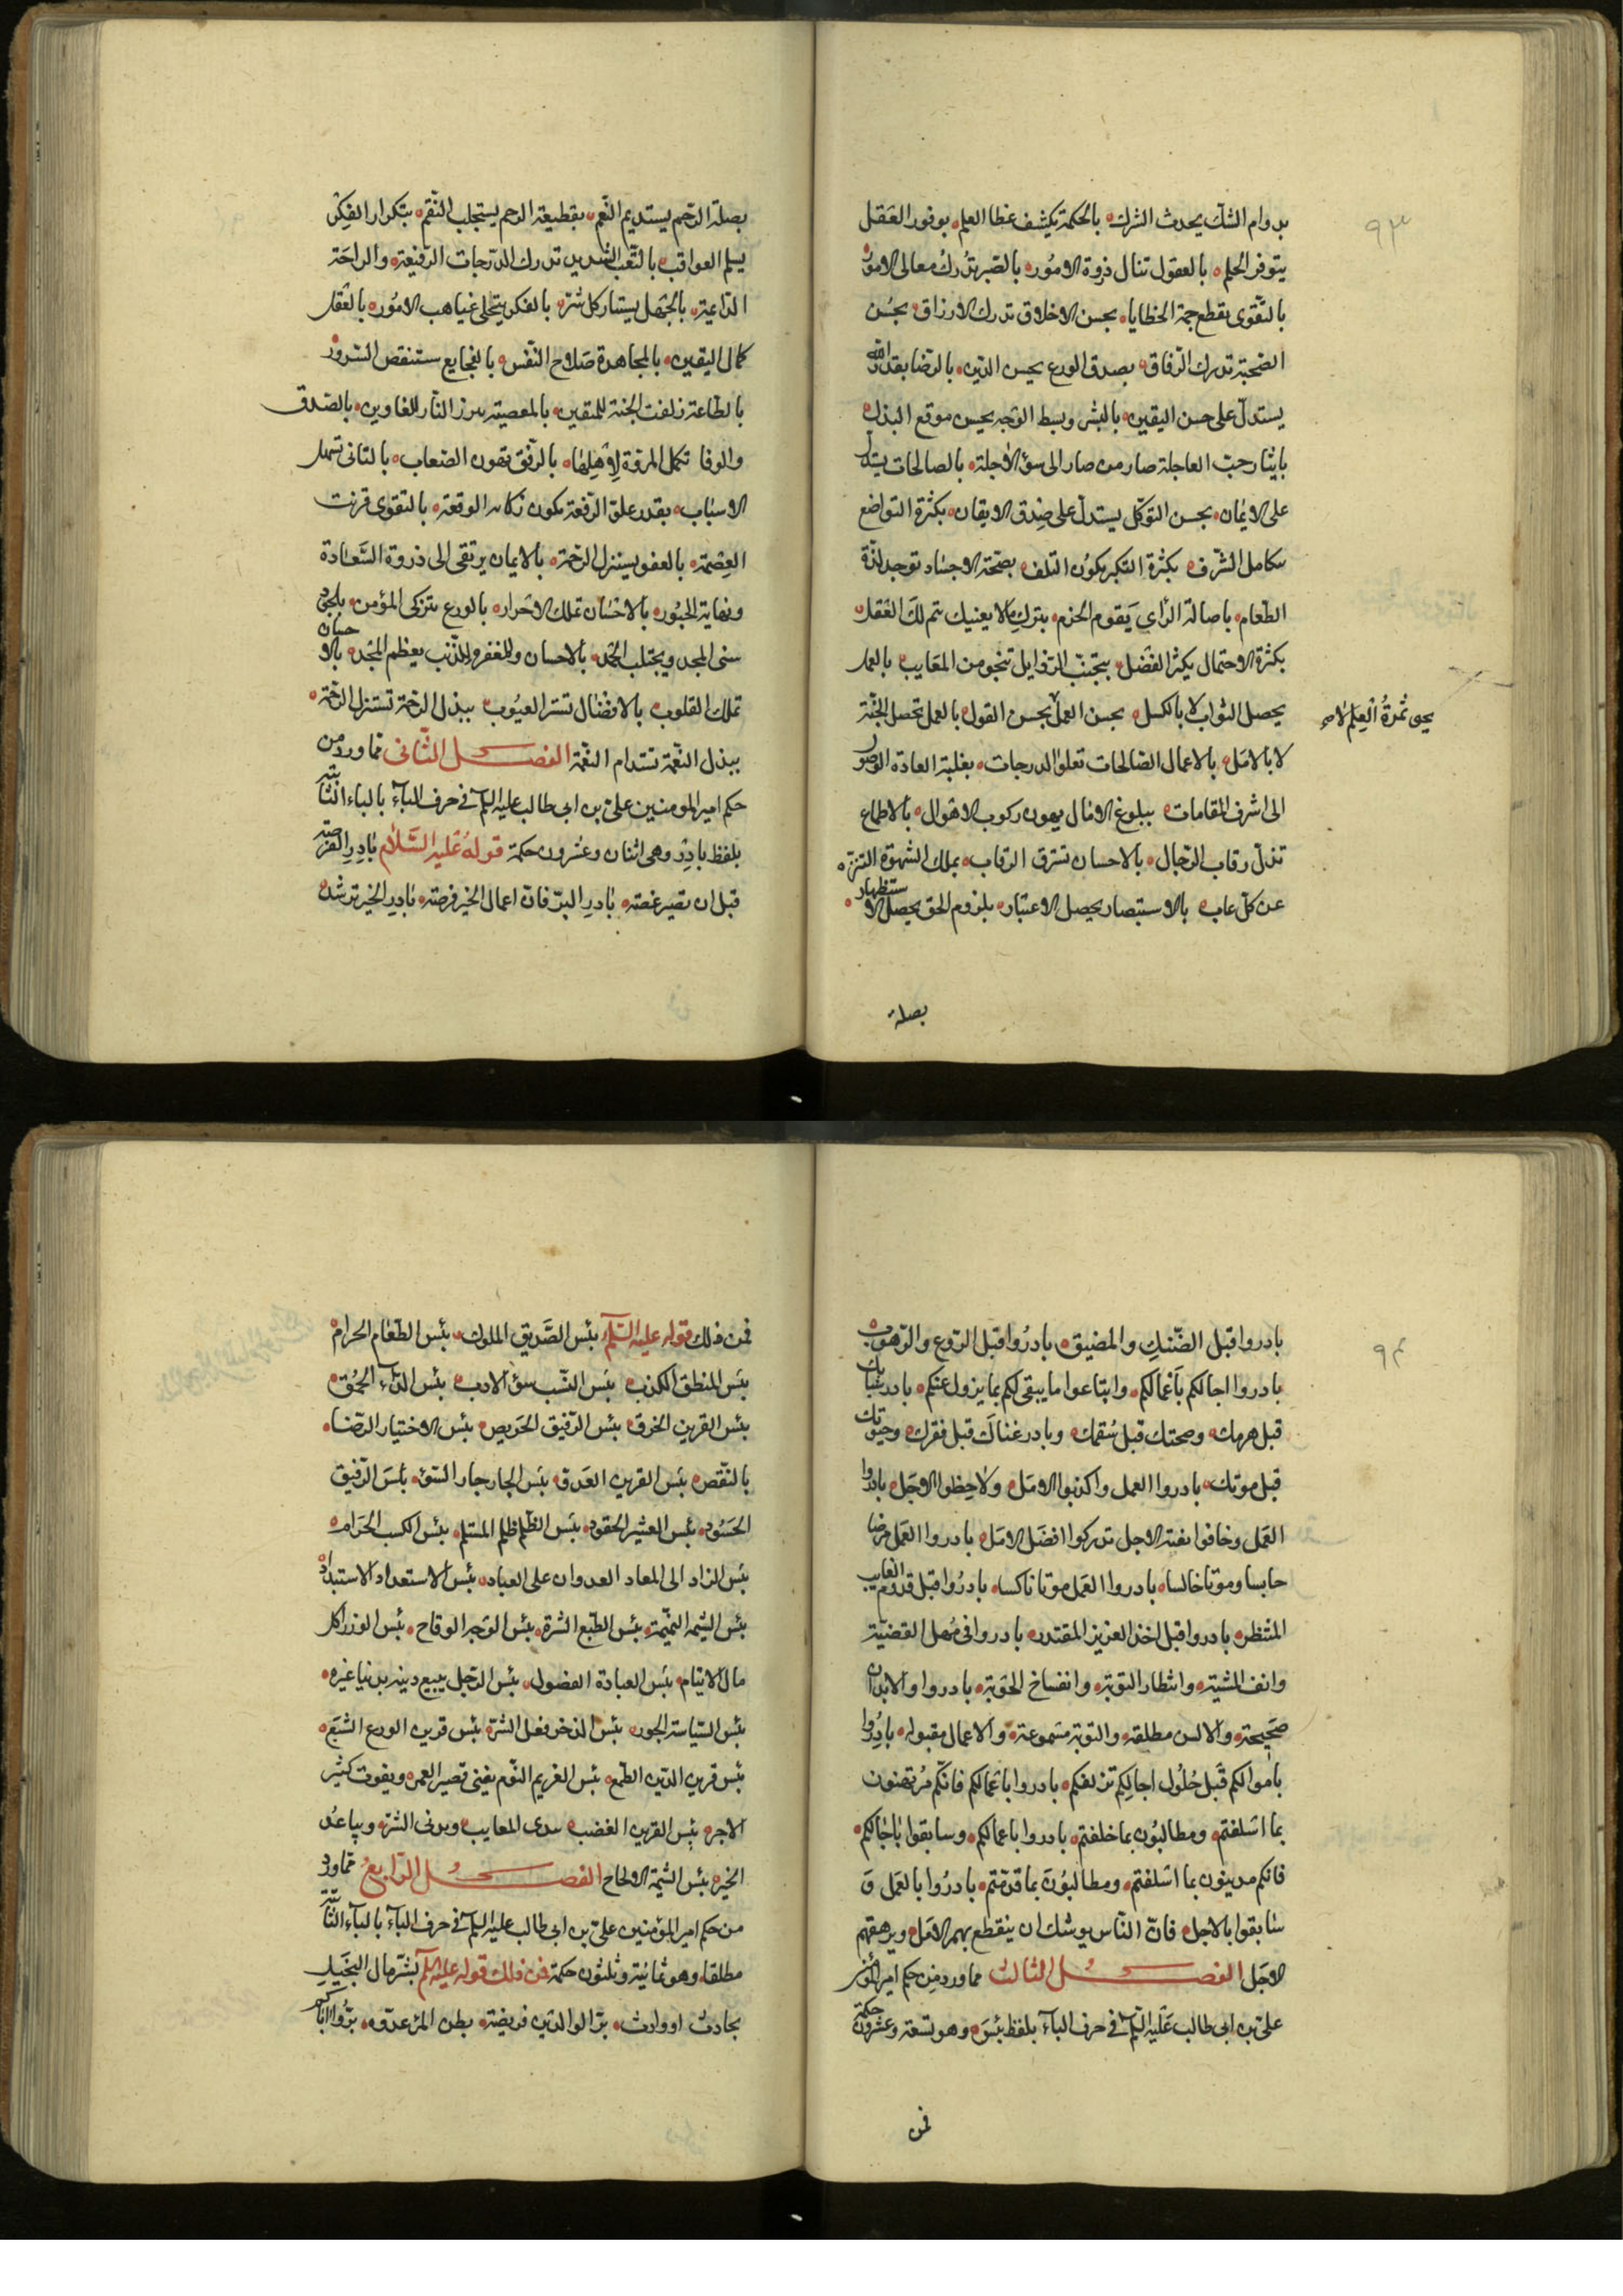 ٩٣
بدوام الشك يحدث الشرك بالحكمة يكشف غطا العلم بوفور العقل
يتوفر الحلم بالعقول تنال ذروة الامور بالصبر تدرك معالى الامور
بالتقوى تقطع حمة الخطايا بحسن الاخلاق تدرك الارزاق بحسن
الصحبة تدرك الرفاق بصدق الورع يحسن الدين بالرضا بقدر الله
يستدل على حسن اليقين بالبشر وبسط الوجه يحسن موقع البذل
بايثار حب العاجلة صار من صار الى سوء الآجلة بالصالحات يستدل
على الايمان بحسن التوكل يستدل على صدق الايقان بكثرة التواضع
تكامل الشرف بكثرة التكبر يكون التلف بصحة الاجساد توجد لذة
الطعام باصالة الراي يقوم الحزم بترك ما لا يعنيك يتم لك العقل
بكثرة الاحتمال يكثر الفضل بتجنب الرذايل تنجو من المعايب بالعمل
يحصل الثواب لا بالكسل بحسن العمل بحسن القول بالعمل تحصل الجنة
يجنى ثمرة العلم لا
لا بالامل بالاعمال الصالحات تعلوا الدرجات بغلبة العادة الوصول
الى اشرف المقامات ببلوغ الامال يهون ركوب الاهوال بالاطماع
تذل رقاب الرجال بالاحسان تسترق الرقاب بملك الشهوة التنزه
عن كل عاب بالاستبصار يحصل الاعتبار بلزوم الحق يحصل الاستظهار
بصلة
بصلة الرحم يستديم النعم بقطيعة الرحم يستجلب النقم بتكرار الفكر
يسلم العواقب بالتعب الشديد تدرك الدرجات الرفيعة والراحة
الداعية بالجهل يستثار كل شر بالفكر ينجلى غياهب الامور بالعقل
كمال اليقين بالمجاهدة صلاح النفس بالفجايع ستنقص السرور
بالطاعة زلفت الجنة للمتقين بالمعصية برز النار للغاوين بالصدق
والوفا تكمل المروة لاهلها بالرفق تهون الصعاب بالتانى تسهل
الاسباب بقدر علو الرفعة يكون نكاية الوقعة بالتقوى قرنت
العصمة بالعفو يستنزل الرحمة بالايمان يرتقى الى ذروة السعادة
ونهاية الحبور بالاحسان تملك الاحرار بالورع يتزكى المؤمن بالجود
سنى المجد ويجتلب الحمد بالاحسان والمغفر والذنب يعظم المجد بالاحسان
تملك القلوب بالافضال تستر العيوب ببذل الرحمة تستنزل الرحمة
ببذل النعمة تستدام النعمة الفصل الثانى مما ورد من
حكم امير المومنين على بن ابى طالب عليه السلم فى حرف الباء بالباء الثابتة
بلفظ بادر وهى اثنان وعشرون حكمة قوله عليه السلام بادر الفرصة
قبل ان تصير غصة بادر البر فان اعمال الخير فرصة بادر الخير ترشد
٩٤
بادروا قبل الضنك والمضيق بادروا قبل الروع والزهوق
بادروا اجالكم باعمالكم وابتاعوا ما يبقى لكم بما يزول عنكم بادر شبابك
قبل هرمك وصحتك قبل سقمك وبادر غناك قبل فقرك وحيوتك
قبل موتك بادروا العمل واكذبوا الامل ولاحظوا الاجل بادروا
العمل وخافوا بغتة الاجل تدركوا افضل الامل بادروا العمل مرضا
حابسا وموتا خالسا بادروا العمل موتا ناكسا بادروا قبل قدوم الغايب
المنتظر بادروا قبل اخذ العزيز المقتدر بادروا فى مهل القضية
وانف المشية وانتظار التوبة وانفساخ الحوبة بادروا والابدان
صحيحة والالسن مطلقة والتوبة مسموعة والاعمال مقبولة بادروا
باموالكم قبل حلول اجالكم تزلفكم بادروا باعمالكم فانكم مرتهنون
بما اسلفتم ومطالبون بما خلفتم بادروا باعمالكم وسابقوا باجالكم
فانكم مدينون بما اسلفتم ومطالبون بما قدمتم بادروا بالعمل و
سابقوا بالاجل فان الناس يوشك ان ينقطع بهم الامل ويرهقهم
الاجل الفصل الثالث مما ورد من حكم امير المؤمنين
على بن ابى طالب عليه السلم فى حرف الباء بلفظ بئس وهو تسعة وعشرون حكمة
فمن
فمن ذلك قوله عليه السلم بئس الصديق الملوك بئس الطعام الحرام
بئس المنطق الكذب بئس النسب سوء الادب بئس الداء الحمق
بئس القرين الخرق بئس الرفيق الحريص بئس الاختيار الرضا
بالنقص بئس القرين العدو بئس الجار جار السوء بئس الرفيق
الحسود بئس العشير الحقود بئس الظلم ظلم المستلم بئس الكسب الحرام
بئس الزاد الى المعاد العدوان على العباد بئس الاستعداد الاستبداد
بئس الشيمة النميمة بئس الطبع الشره بئس الوجه الوقاح بئس الوزر اكل
مال الايتام بئس العبادة الفضول بئس الرجل يبيع دينه بدنيا غيره
بئس السياسة الجور بئس الذخر فعل الشر بئس قرين الورع الشبع
بئس قرين الدين الطمع بئس الغريم النوم يفنى قصير العمر ويفوت كثير
الاجر بئس القرين الغضب يبدى المعايب ويدنى الشر ويباعد
الخير بئس الشيمة الالحاح الفصل الرابع مما ورد
من حكم امير المؤمنين على بن ابى طالب عليه السلم فى حرف الباء بالباء الثابتة
مطلقا وهو ثمانية وثلثون حكمة فمن ذلك قوله عليه السلم بشر مال البخيل
بحادث او وارث بر الوالدين فريضة بطن المرء عدوه بروا اباكم